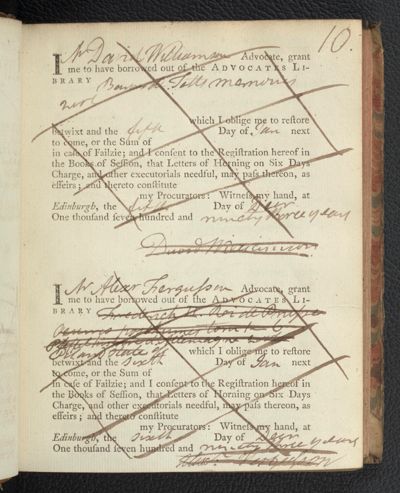 10.
I Mr David Williamson Advocate, grant
me to have borrowed out of the ADVOCATES LI-
BRARY memoires
which I oblige me to reſtore
betwixt and the fifth Day of Jan next
to come, or the Sum of
in caſe of Failzie; and I conſent to the Regiſtration hereof in
the Books of Seſſion, that Letters of Horning on Six Days
Charge, and other executorials needful, may paſs thereon, as
effeirs; and thereto conſtitute
my Procurators: Witneſs my hand, at
Edinburgh, the fifth Day of Decr
One thouſand ſeven hundred and ninety three years
David Williamson
I Mr Alexr Fergusson Advocate, grant
me to have borrowed out of the ADVOCATES LI-
BRARY
which I oblige me to reſtore
betwixt and the sixth Day of Jan next
to come, or the Sum of
in caſe of Failzie; and I conſent to the Regiſtration hereof in
the Books of Seſſion, that Letters of Horning on Six Days
Charge, and other executorials needful, may paſs thereon, as
effeirs; and thereto conſtitute
my Procurators: Witneſs my hand, at
Edinburgh, the sixth Day of Decr
One thouſand ſeven hundred and ninety three years
Alexr Fergusson